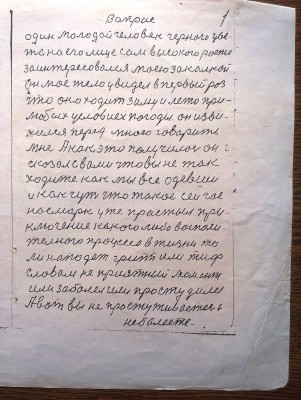 Вопрос 1
один молодой человек черного цве-
та на его лице сам высокого роста
заинтересовался моею закалкой
он мое тело увидел в первый роз
что оно ходит зиму и лето при
любых условиех погоды он изви-
нился перед мною говорить
мне А как это получилои он
сказал с вами что вы не так
ходите как мы все одевши
и как чут что такое сей час
насморк уже прастыл при-
ключение какого либо воспали-
тельного процесса в жизни то
ли нападет грипп или тиф
словам не приятный момент
или заболел или простудился
А вот вы не простуживаетесь
не болеете.